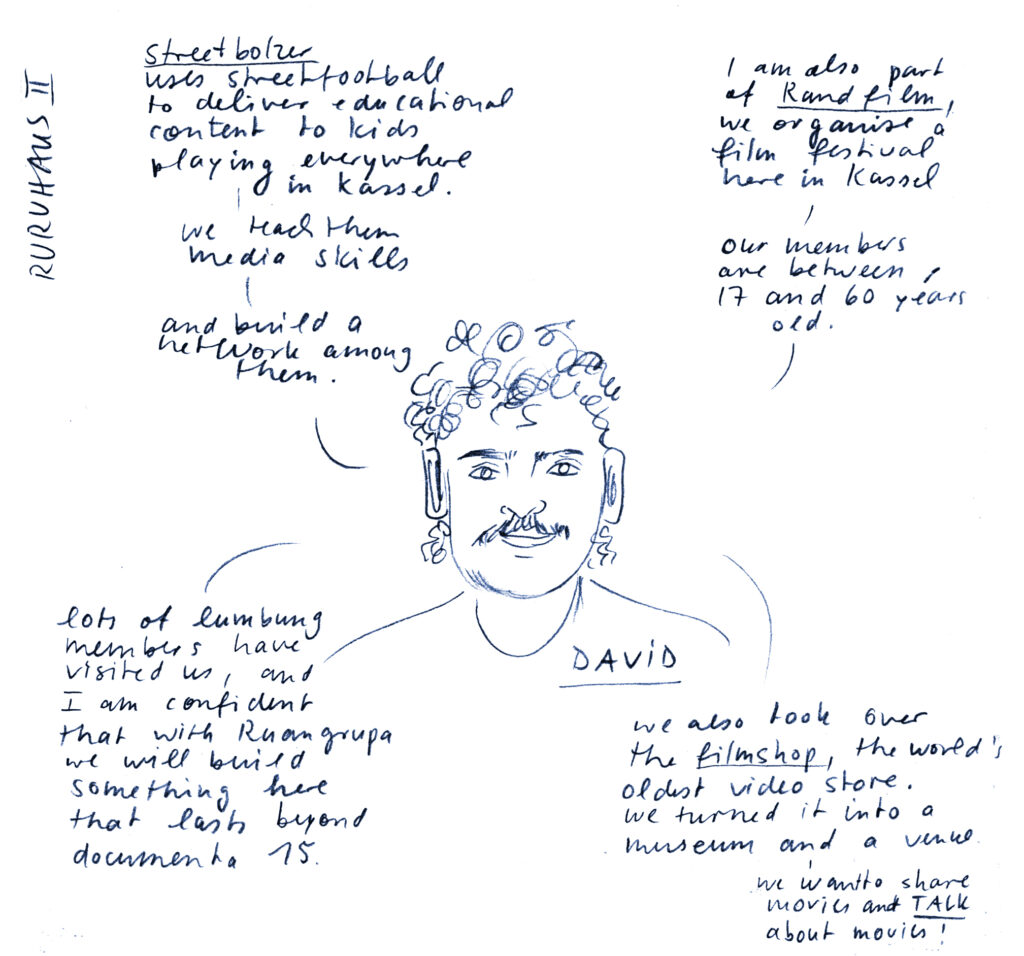 RURUHAUS II
streetbolzer
uses streetfootball
to deliver educational
content to kids
playing everywhere
in Kassel.
we teach them
media skills
and build a
network among
them.
I am also part
of Randfilm,
we organise a
film festival
here in Kassel
our members
are between
17 and 60 years
old.
DAVID
lots of lumbung
members have
visited us, and
I am confident
that with Ruangrupa
we will build
something here
that lasts beyond
documenta 15.
we also took over
the filmshop, the world's
oldest video store.
we turned it into a
museum and a venue
we want to share
movies and TALK
about movies!